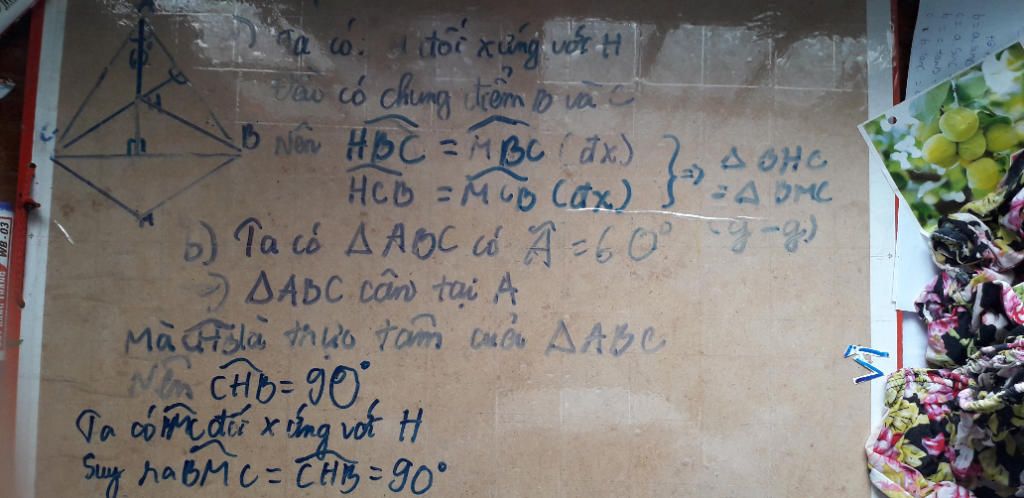 Ta có: M đối xứng với H
Đào có chung điểm B và C
Nên HBC = MBC (đx)
HCB = MCB (đx)
} => Δ BHC
= Δ BMC
(g-g)
b) Ta có Δ ABC có Â = 60°
=> ΔABC cân tại A
Mà là trực tâm của ΔABC
Nên CHB = 90°
Ta có đối xứng với H
Suy ra BMC = CHB = 90°
C
B
H
WB-03